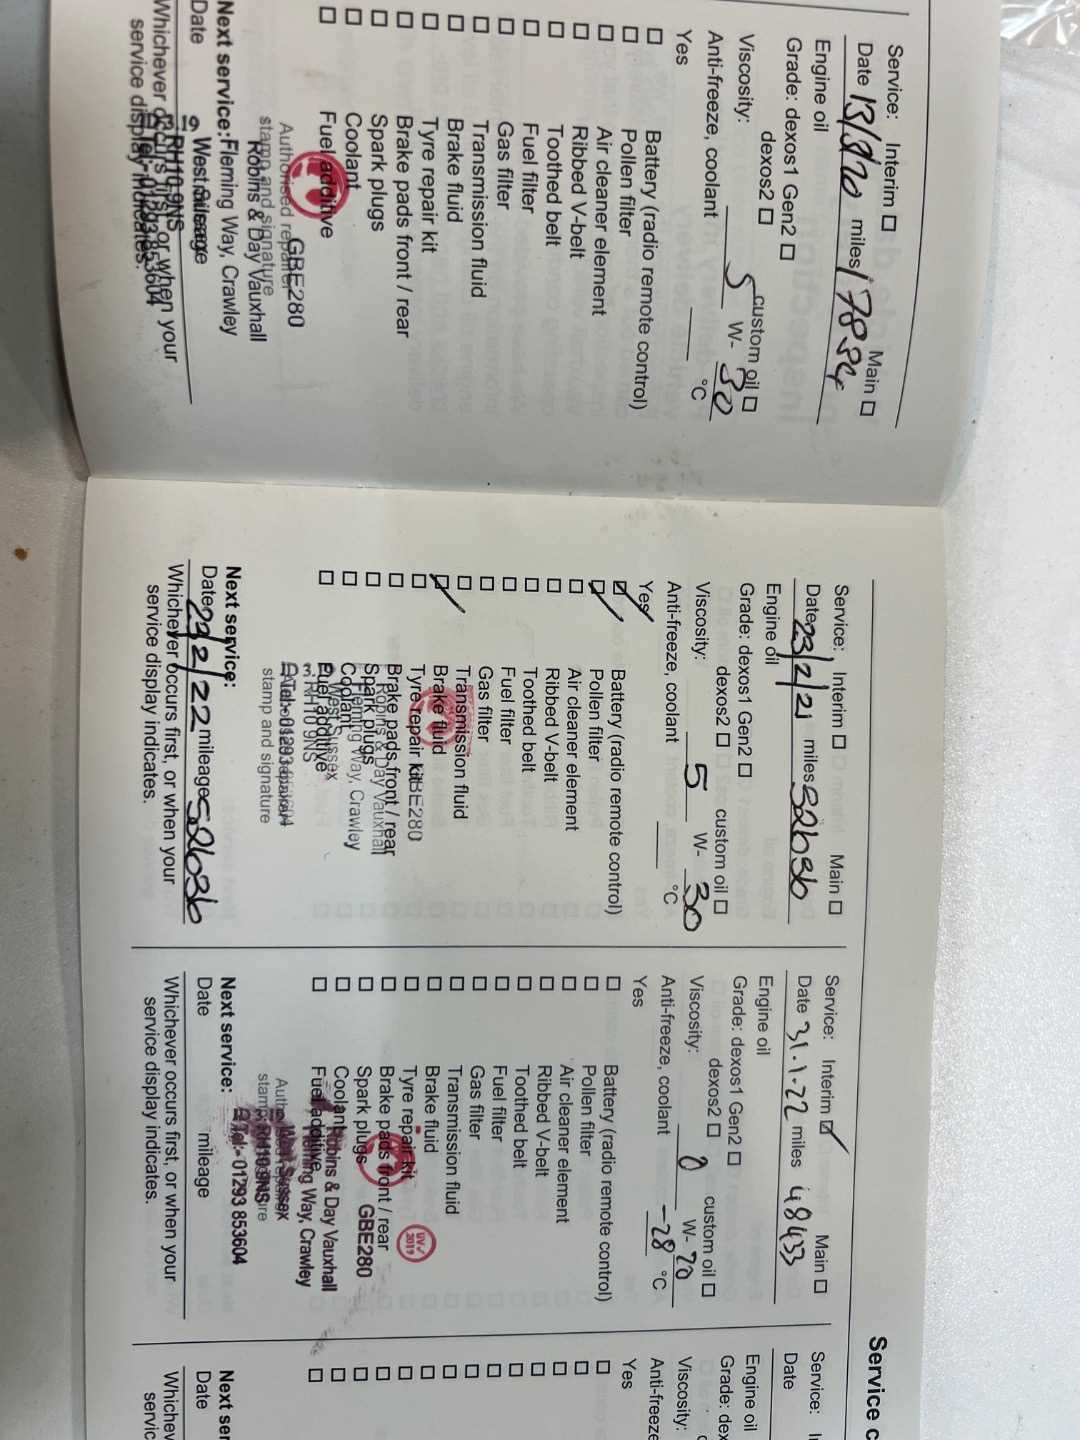 Service: Interim ☐ Main ☐
Date 13/8/20 miles 17884
Engine oil
Grade: dexos1 Gen2 ☐
dexos2 ☐ custom oil ☐
Viscosity: 5 W- 30
Anti-freeze, coolant °C
Yes
☐ Battery (radio remote control)
☐ Pollen filter
☐ Air cleaner element
☐ Ribbed V-belt
☐ Toothed belt
☐ Fuel filter
☐ Gas filter
☐ Transmission fluid
☐ Brake fluid
☐ Tyre repair kit
☐ Brake pads front / rear
☐ Spark plugs
☐ Coolant
☐ Fuel additive
GBE280
Authorised repairer
stamp and signature
Robins & Day Vauxhall
Next service: Fleming Way, Crawley
Date West Sussex
RH10 9NS
Whichever occurs first, or when your
service display indicates.
Tel:- 01293 853604
Service: Interim ☐ Main ☐
Date 23/2/21 miles 32636
Engine oil
Grade: dexos1 Gen2 ☐
dexos2 ☐ custom oil ☐
Viscosity: 5 W- 30
Anti-freeze, coolant °C
Yes
☑ Battery (radio remote control)
☑ Pollen filter
☐ Air cleaner element
☐ Ribbed V-belt
☐ Toothed belt
☐ Fuel filter
☐ Gas filter
☐ Transmission fluid
☑ Brake fluid
☐ Tyre repair kit GBE280
☐ Brake pads front / rear
Robins & Day Vauxhall
☐ Spark plugs
Fleming Way, Crawley
☐ Coolant
West Sussex
☐ Fuel additive
RH10 9NS
Tel:- 01293 853604
stamp and signature
Next service:
Date 23/2/22 mileage 52636
Whichever occurs first, or when your
service display indicates.
Service c
Service: Interim ☑ Main ☐
Date 31-1-22 miles 48433
Engine oil
Grade: dexos1 Gen2 ☐
dexos2 ☐ custom oil ☐
Viscosity: 0 W- 20
Anti-freeze, coolant -28 °C
Yes
☐ Battery (radio remote control)
☐ Pollen filter
☐ Air cleaner element
☐ Ribbed V-belt
☐ Toothed belt
☐ Fuel filter
☐ Gas filter
☐ Transmission fluid
☐ Brake fluid
☐ Tyre repair kit
2019
☐ Brake pads front / rear
☐ Spark plugs GBE280
☐ Coolant
Robins & Day Vauxhall
☐ Fuel additive
Fleming Way, Crawley
West Sussex
RH10 9NS
Tel:- 01293 853604
Next service:
Date mileage
Whichever occurs first, or when your
service display indicates.
Service: I
Date
Engine oil
Grade: dex
Viscosity:
Anti-freeze
Yes
Next ser
Date
Whichev
servic